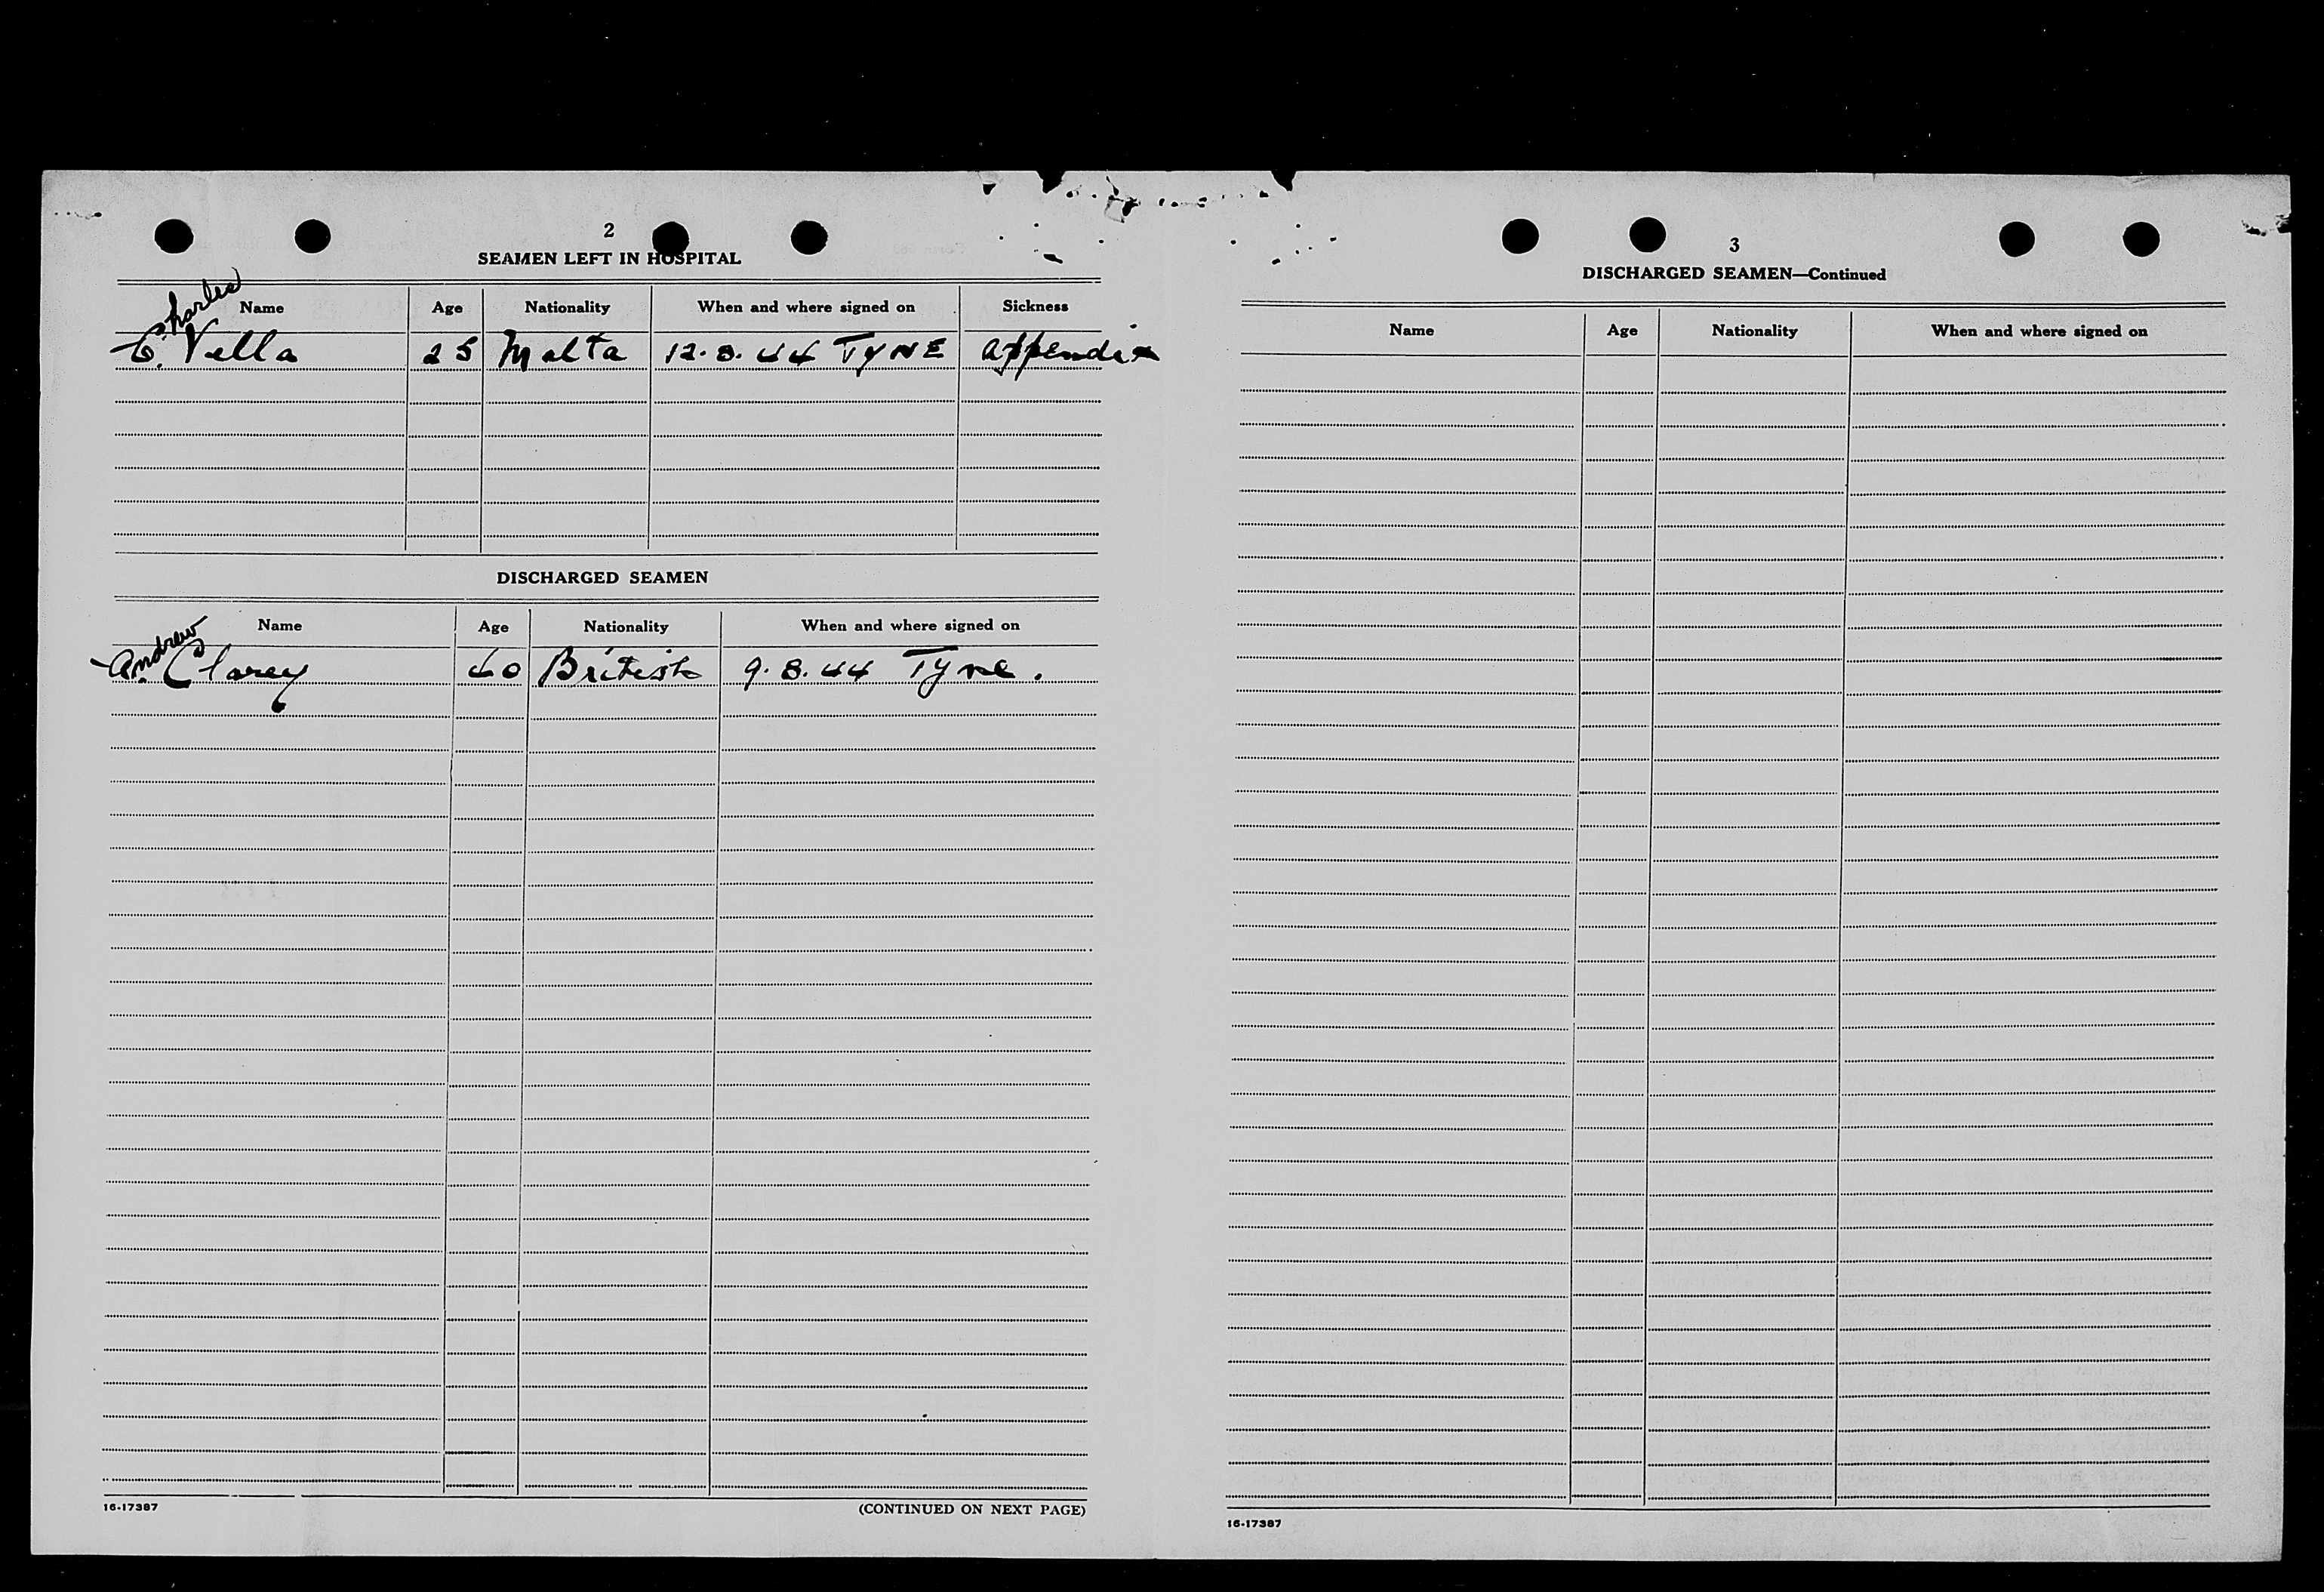 2
SEAMEN LEFT IN HOSPITAL
Name Age Nationality When and where signed on Sickness
Charles
C. Vella 25 Malta 12.8.44 TYNE appendix
DISCHARGED SEAMEN
Name Age Nationality When and where signed on
Andrew
A. Clarey 40 British 9.8.44 Tyne.
16-17387
(CONTINUED ON NEXT PAGE)
3
DISCHARGED SEAMEN—Continued
Name Age Nationality When and where signed on
16-17387